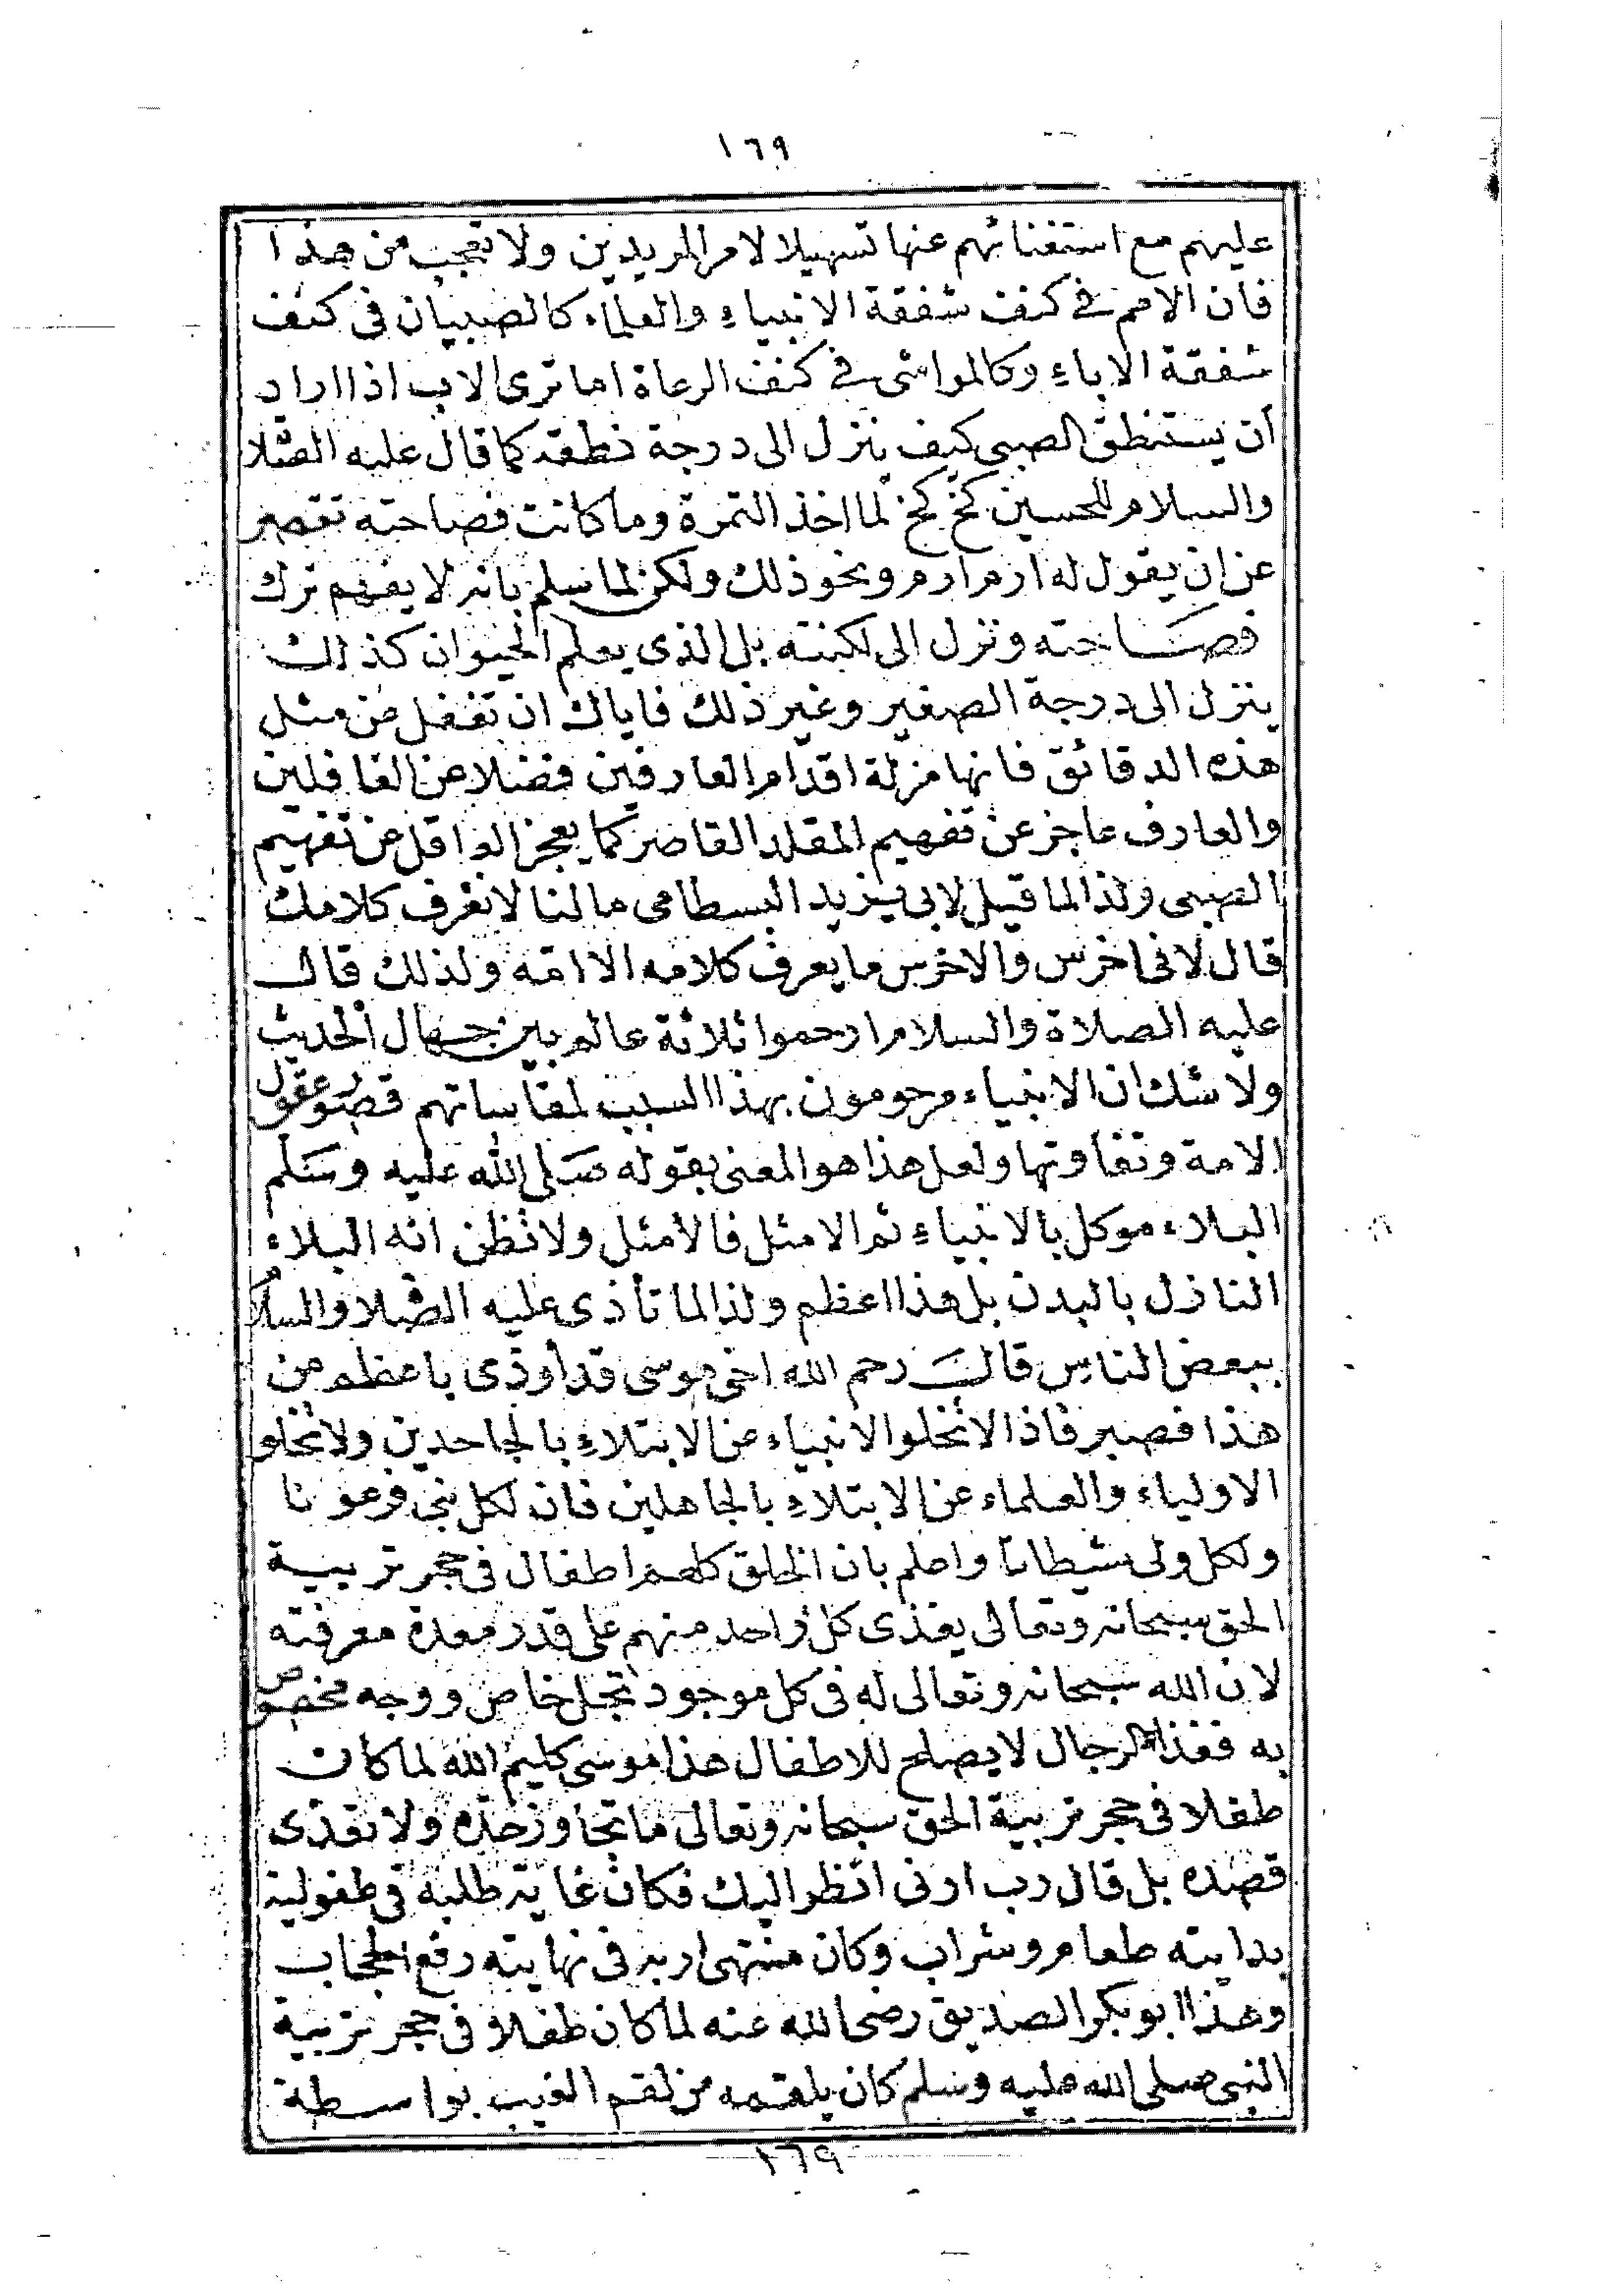 ١٦٩
عليهم مع استغنائهم عنها تسهيلا لامر المريدين ولا تعجب من هذا
فان الامم في كنف شفقة الانبياء والعلماء كالصبيان في كنف
شفقة الاباء وكالمواشى في كنف الرعاة اما ترى الاب اذا اراد
أن يستنطق الصبى كيف ينزل الى درجة نطقه كما قال عليه الصلاة
والسلام للحسين كخ كخ لما اخذ التمرة وما كانت فصاحته تقصر
عن ان يقول له ارم ارم ونحو ذلك ولكن لما سلم بانه لا يفهم ترك
فصاحته ونزل الى لكنته بل الذى يعلم الحيوان كذلك
ينزل الى درجة الصغير وغير ذلك فاياك ان تغفل من مثل
هذه الدقائق فانها مزلة اقدام العارفين فضلا عن الغافلين
والعارف عاجز عن تفهيم المقلد القاصر كما يعجز العاقل عن تفهيم
الصبى ولذا لما قيل لابى يزيد البسطامى ما لنا لا نعرف كلامك
قال لانى اخرس والاخرس ما يعرف كلامه الا امه ولذلك قال
عليه الصلاة والسلام ارحموا ثلاثة عالم بين جهال الحديث
ولا شك ان الانبياء مرحومون بهذا السبب لمقاساتهم قصور عقول
الامة وتفاوتها ولعل هذا هو المعنى بقوله صلى الله عليه وسلم
البلاء موكل بالانبياء ثم الامثل فالأمثل ولا تظن انه البلاء
النازل بالبدن بل هذا اعظم ولذا لما تأذى عليه الصلاة والسلام
ببعض الناس قال رحم الله اخى موسى قد أوذى باعظم من
هذا فصبر فاذا لا تخلوا الانبياء عن الابتلاء بالجاحدين ولا تخلو
الاولياء والعلماء عن الابتلاء بالجاهلين فان لكل نبى فرعونا
ولكل ولى شيطانا واعلم بان الخلق كلهم اطفال في حجر تربية
الحق سبحانه وتعالى يغذى كل واحد منهم على قدر معدة معرفته
لان الله سبحانه وتعالى له فى كل موجود تجل خاص ووجه مخصوص
به فغذاء الرجال لا يصلح للاطفال هذا موسى كليم الله لما كان
طفلا فى حجر تربية الحق سبحانه وتعالى ما تجاوز حده ولا تعدى
قصده بل قال رب ارنى انظر اليك فكان غاية طلبه في طفولية
بدايته طعام وشراب وكان منتهى اربه فى نهايته رفع الحجاب
وهذا ابو بكر الصديق رضى الله عنه لما كان طفلا فى حجر تربية
النبى صلى الله عليه وسلم كان يلقمه من لقم الغيب بواسطة
١٦٩